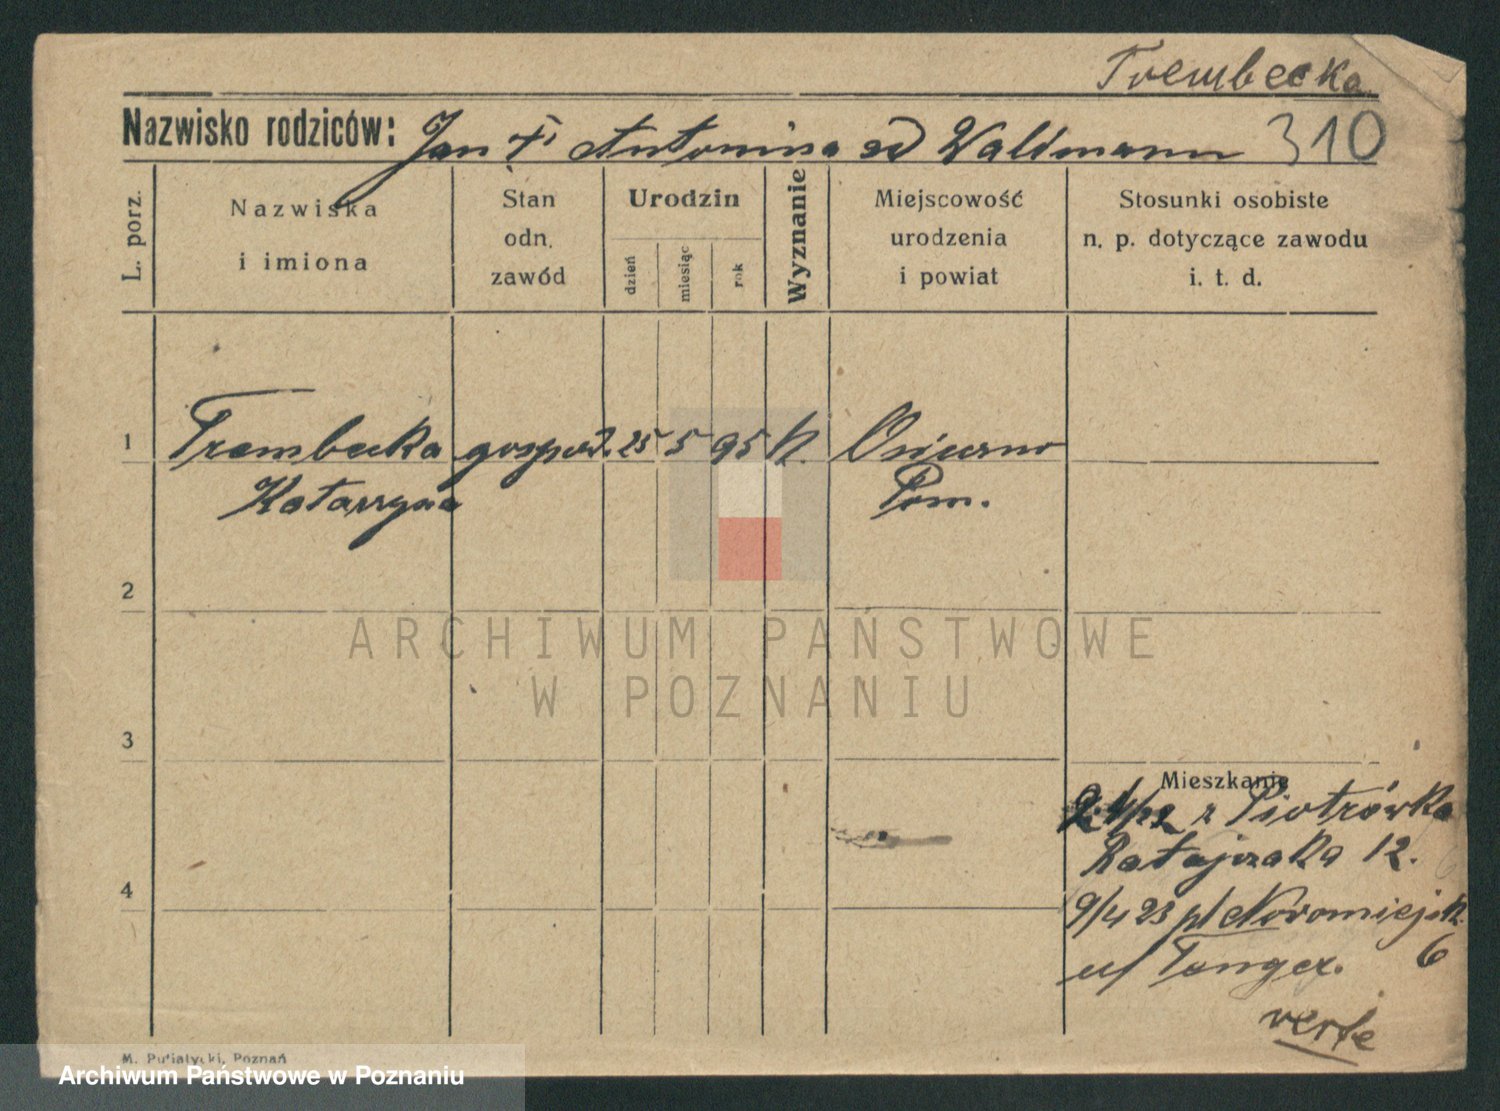 Trembecka
Nazwisko rodziców: Jan Antonina Waldmann 310
L. porz.
Nazwiska
i imiona
Stan
odn.
zawód
Urodzin
dzień
miesiąc
rok
Wyznanie
Miejscowość
urodzenia
i powiat
Stosunki osobiste
n. p. dotyczące zawodu
i. t. d.
1 Trembecka gospod. 25 5 95 k.
Katarzyna Pom.
2
ARCHIWUM PAŃSTWOWE
W POZNANIU
3
Mieszkanie
z Piotrówka
Ratajczaka 12.
4
9/4 23 pl Nowomiejsk.
u/ Tonger. 6
verte
M. Putiatycki, Poznań
Archiwum Państwowe w Poznaniu